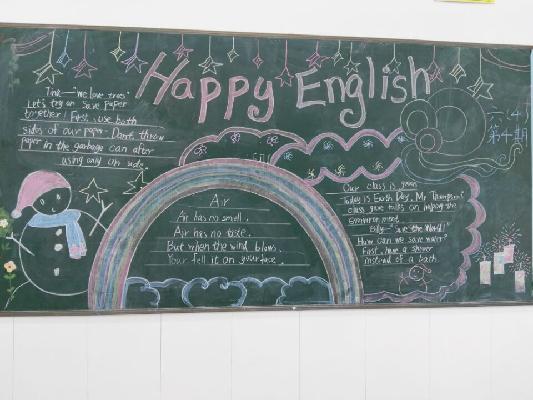 Happy English
Tink — "We love trees."
Let's try to save paper
together! First, use both
sides of our paper. Don't throw
paper in the garbage can after
using only on side.
Air
Air has no smell.
Air has no taste.
But when the wind blows,
Your fell it on your face.
Our class is green
Today is Earth Day, Mr. Thompson's
class give talks on the
Environment.
Billy — "Save the World!
How can we save water?
First, have a shower
instead of a bath.
二(4)
第4期